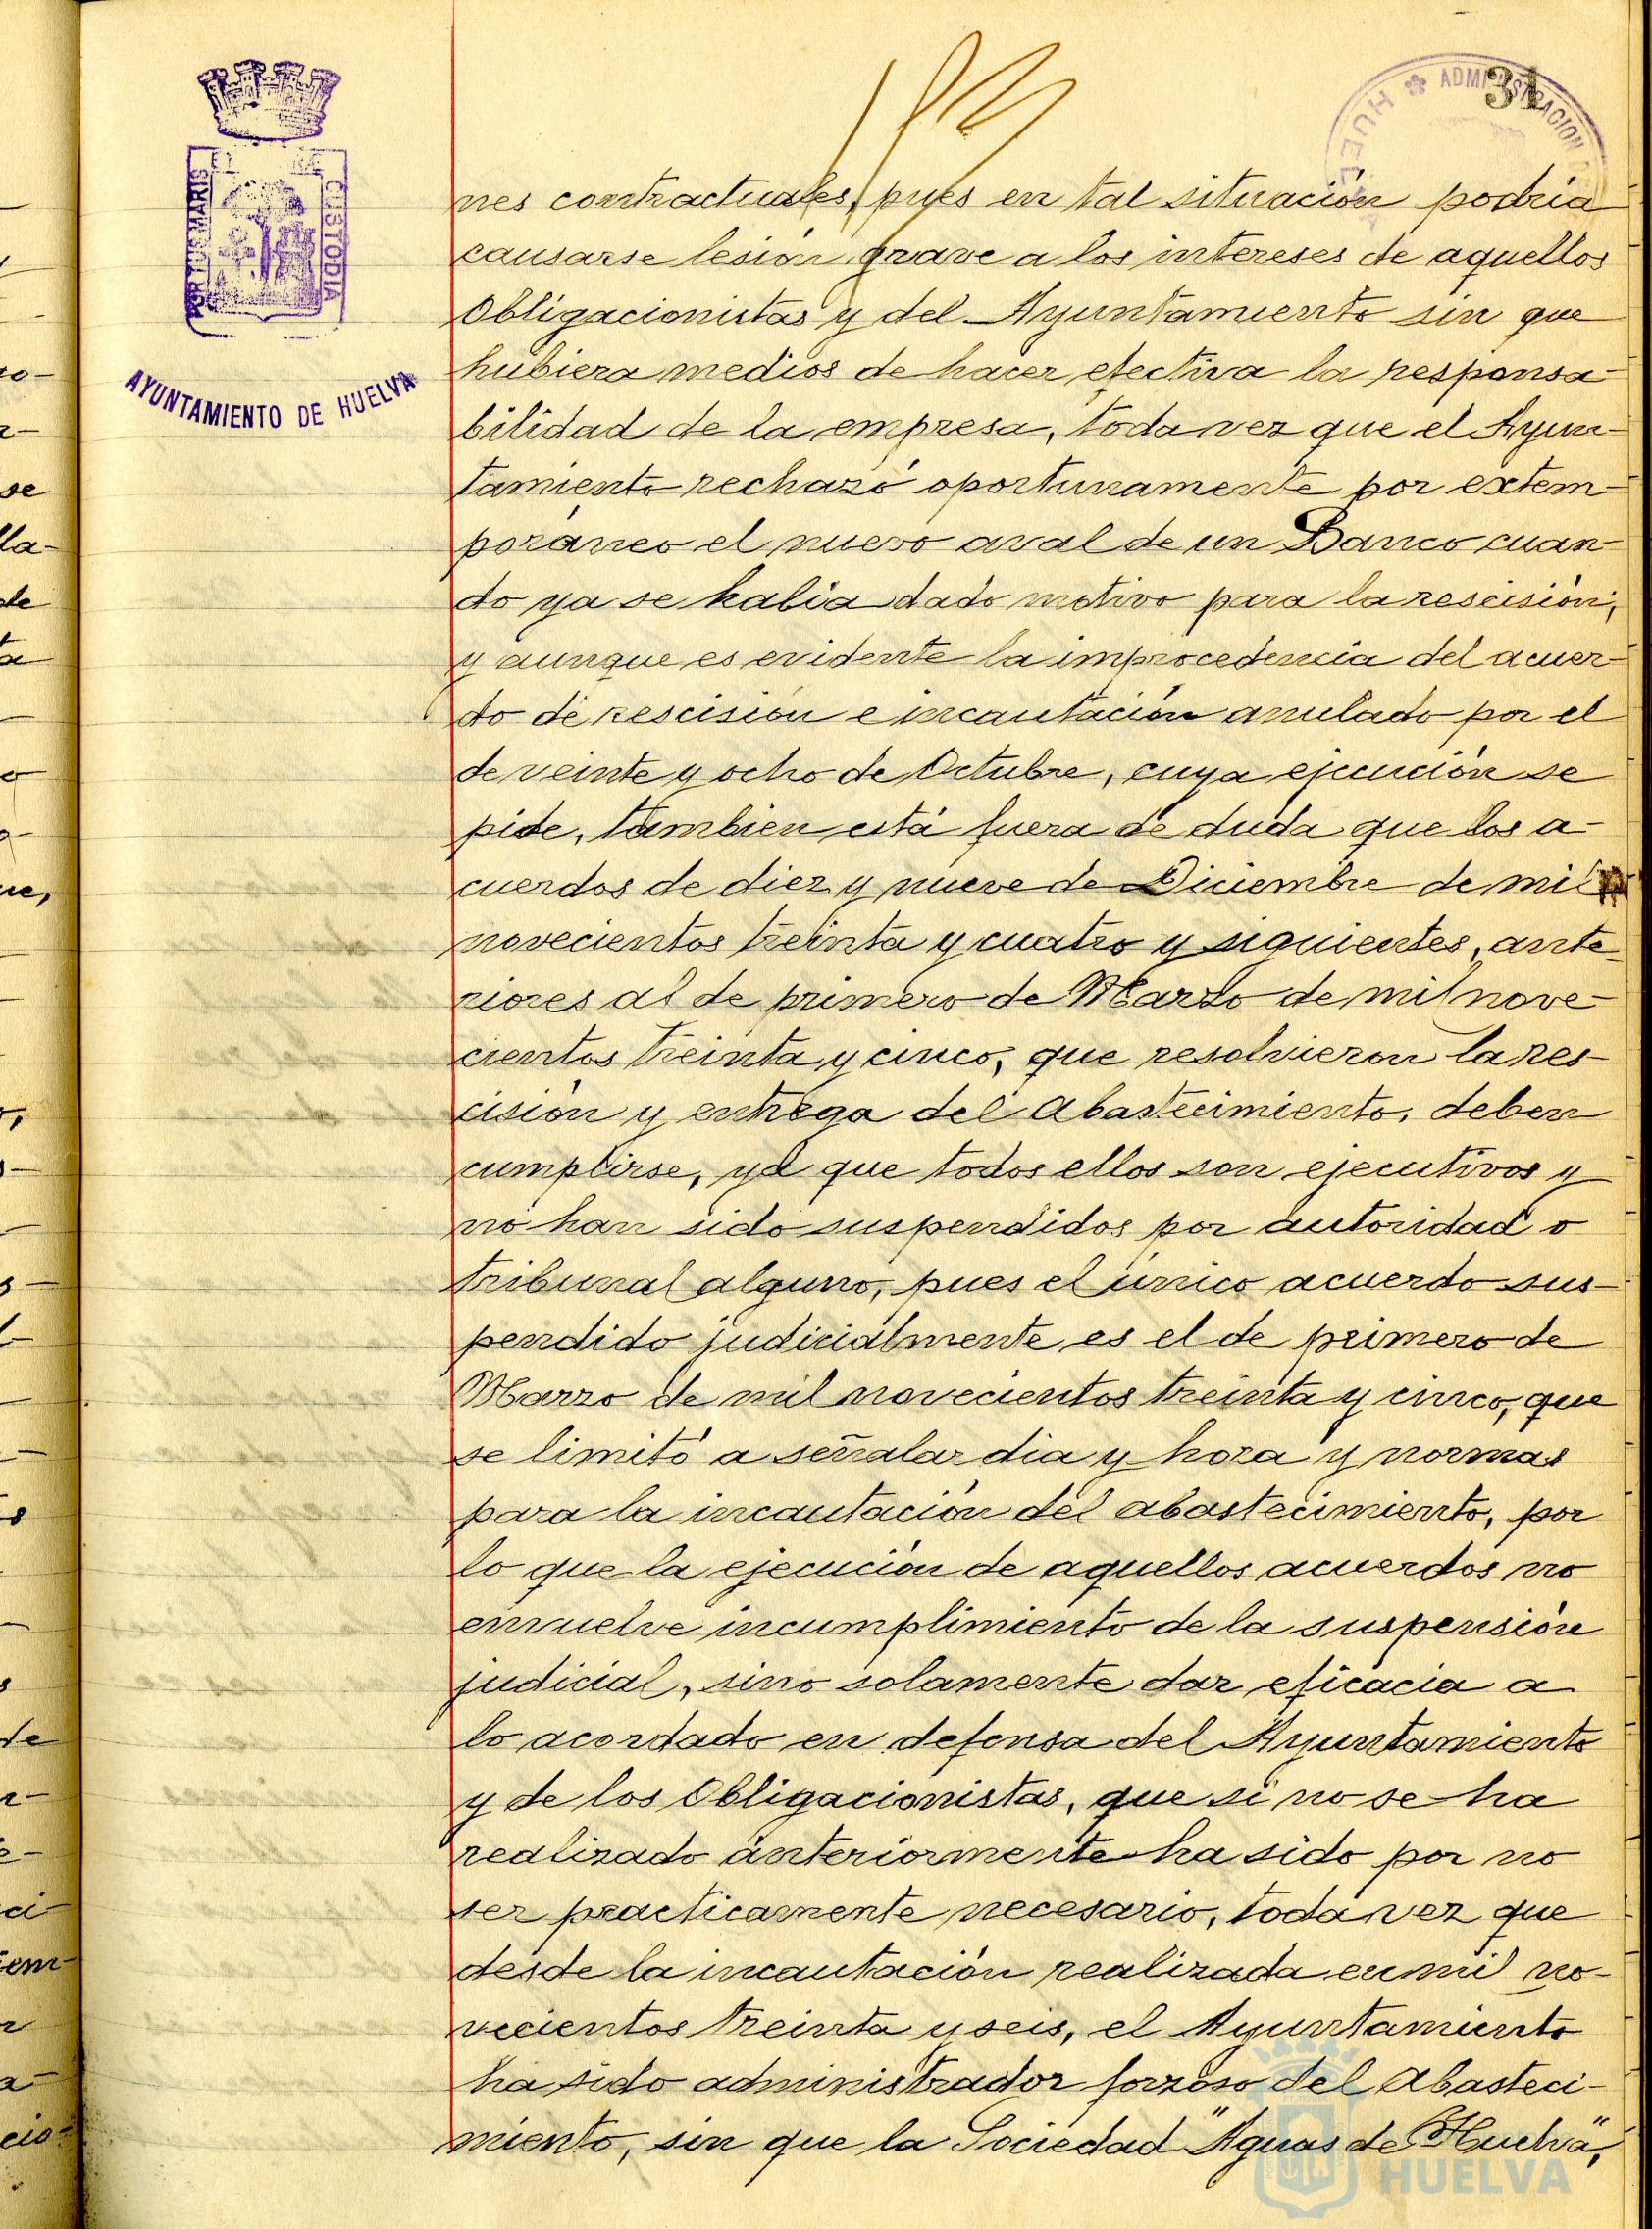 31
ADMINISTRACION
HUELVA
PORTUS MARIS
CUSTODIA
AYUNTAMIENTO DE HUELVA
nes contractuales, pues en tal situación podría
causarse lesión grave a los intereses de aquellos
Obligacionistas y del Ayuntamiento sin que
hubiera medios de hacer efectiva la responsa-
bilidad de la empresa, toda vez que el Ayun-
tamiento rechazó oportunamente por extem-
poráneo el nuevo aval de un Banco cuan-
do ya se habia dado motivo para la rescisión,
y aunque es evidente la improcedencia del acuer-
do de rescisión e incautación anulado por el
de veinte y ocho de Octubre, cuya ejecución se
pide, tambien está fuera de duda que los a-
cuerdos de diez y nueve de Diciembre de mil
novecientos treinta y cuatro y siguientes, ante-
riores al de primero de Marzo de mil nove-
cientos treinta y cinco, que resolvieron la res-
cisión y entrega del Abastecimiento, deben
cumplirse, ya que todos ellos son ejecutivos y
no han sido suspendidos por autoridad o
tribunal alguno, pues el único acuerdo sus-
pendido judicialmente es el de primero de
Marzo de mil novecientos treinta y cinco, que
se limitó a señalar dia y hora y normas
para la incautación del abastecimiento, por
lo que la ejecución de aquellos acuerdos no
envuelve incumplimiento de la suspensión
judicial, sino solamente dar eficacia a
lo acordado en defensa del Ayuntamiento
y de los Obligacionistas, que si no se ha
realizado anteriormente ha sido por no
ser practicamente necesario, toda vez que
desde la incautación realizada en mil no-
vecientos treinta y seis, el Ayuntamiento
ha sido administrador forzoso del Abasteci-
miento, sin que la Sociedad "Aguas de Huelva",
HUELVA